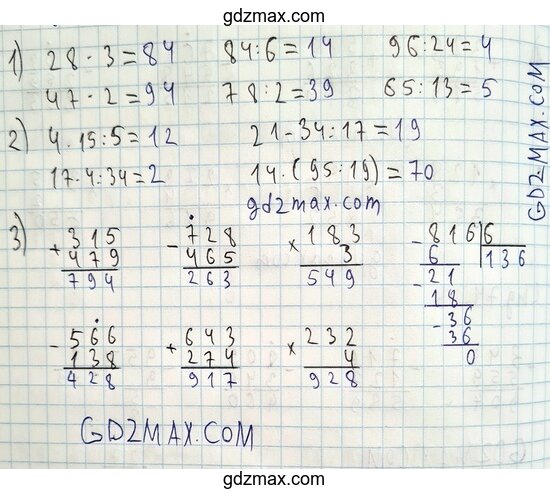 gdzmax.com
1) 28 · 3 = 84 84 : 6 = 14 96 : 24 = 4
47 · 2 = 94 78 : 2 = 39 65 : 13 = 5
2) 4 · 15 : 5 = 12 21 - 34 : 17 = 19
17 · 4 : 34 = 2 14 · (95 : 19) = 70
gdzmax.com
GDZMAX.COM
3)
+ 315
479
794
- 728
465
263
× 183
3
549
- 816 | 6
6 136
- 21
18
- 36
36
0
- 566
138
428
+ 643
274
917
× 232
4
928
GDZMAX.COM
gdzmax.com